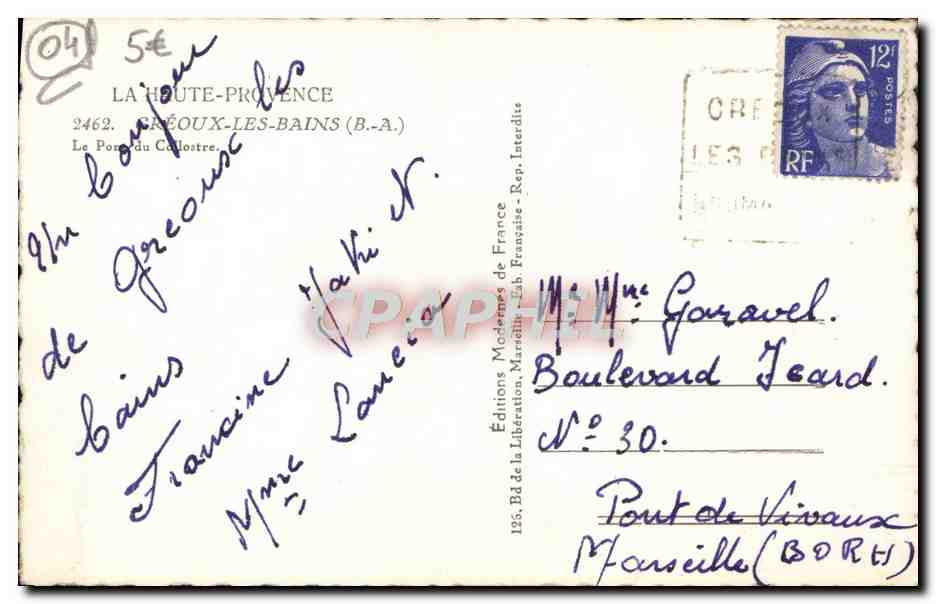 04
5€
LA HAUTE-PROVENCE
2462. GRÉOUX-LES-BAINS (B.-A.)
Le Pont du Collostre.
Un bonjour
de Greoux les
bains
Francine Maki N.
Mme Lancia
Éditions Modernes de France
126, Bd de la Libération, Marseille - Fab. Française - Rep. Interdite
CPAPHIL
12f
POSTES
RF
GRE
LES B
Mr Mme Garavel.
Boulevard Icard.
N° 30.
Pont de Vivaux
Marseille (BDRH)